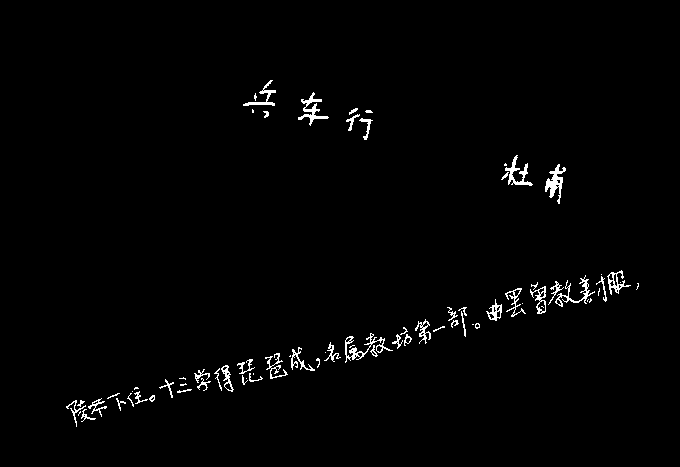 兵车行
杜甫
陵下住。十三学得琵琶成,名属教坊第一部。曲罢曾教善才服,